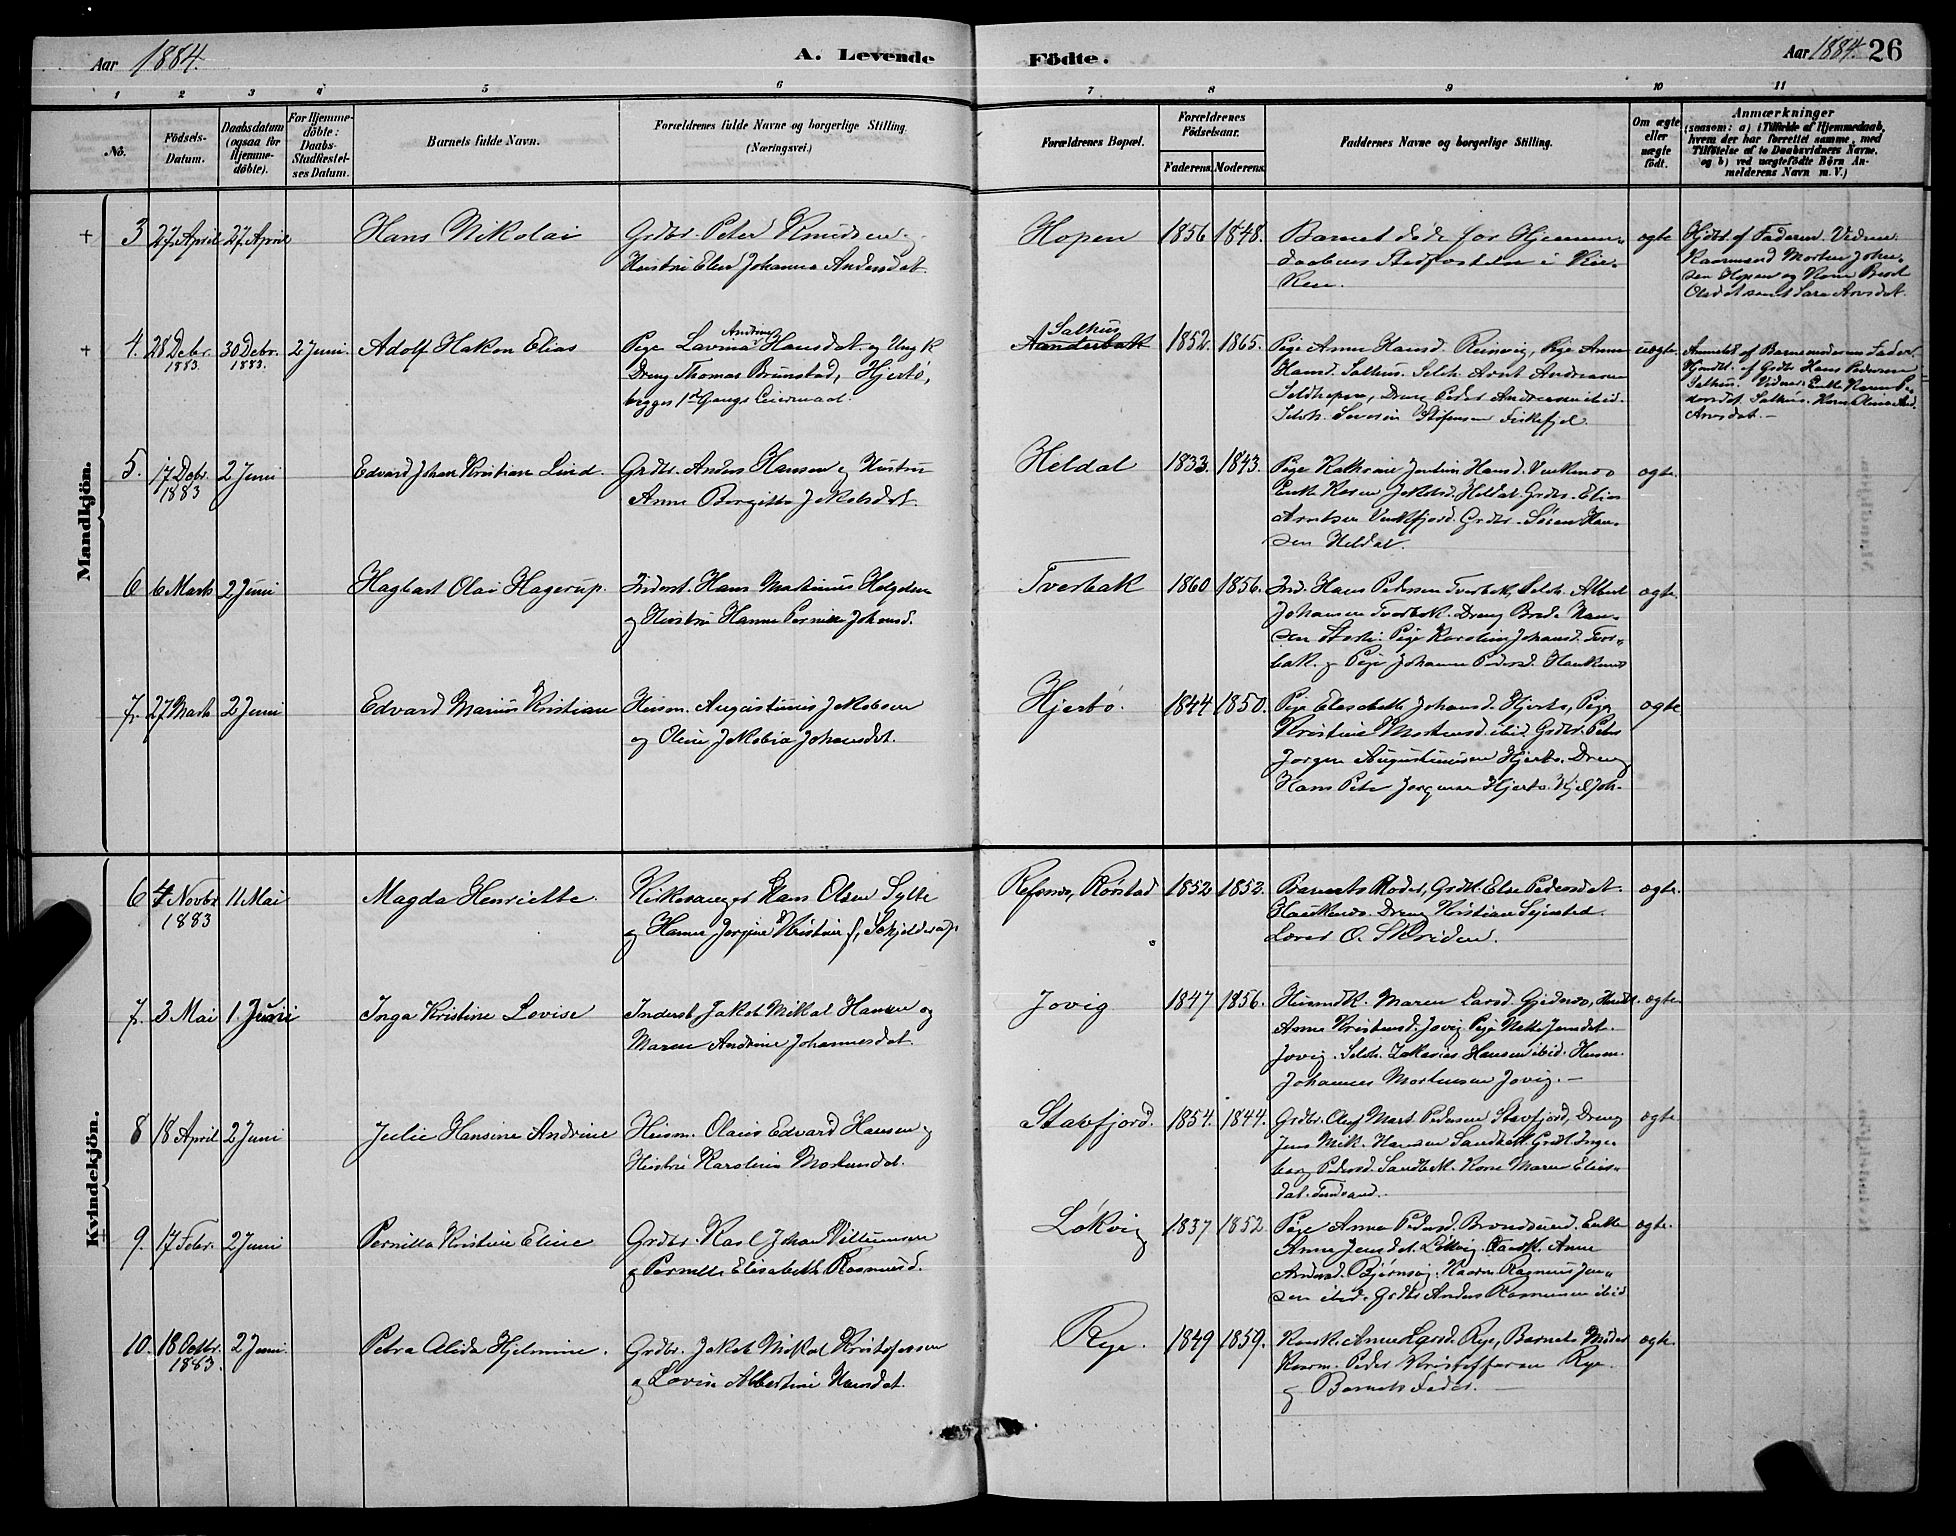 Aar 1884.
A. Levende
Födte.
Aar 1884. 26
1 2 3 4 5 6 7 8 9 10 11
No.
Födsels-
Datum.
Daabsdatum
(ogsaa for
Hjemme-
döbte).
For Hjemme-
döbte:
Daabs-
Stadfæstel-
ses Datum.
Barnets fulde Navn.
Forældrenes fulde Navne og borgerlige Stilling.
(Næringsvei.)
Forældrenes Bopæl.
Forældrenes
Födselsaar.
Faderens. Moderens.
Faddernes Navne og borgerlige Stilling.
Om ægte
eller
uægte
födt.
Anmærkninger
(saasom: a) i Tilfælde af Hjemmedaab,
hvem der har forrettet samme, med
Tilföielse af to Daabsvidners Navne,
og b) ved uægtefödte Börn An-
melderens Navn m. V.)
Mandkjön.
+ 3 27 April 27 April
Hans Nikolai
Grdbr. Peter Knudsen og
Hustru Elen Johanna Andersdat.
Hopen
1856 1848.
Barnet døde før Hjemme-
daabens Stadfæstelse i Kir-
ken.
ægte
Hjdbt. af Faderen. Vidner:
Rasmus Morten Johan-
sen Hopen og Kone Berit
Olsdat samt Sara Arnsdat.
+ 4. 28 Debr. 1883. 30 Debr. 1883. 2 Juni.
Adolf Hakon Elias
Pige Lavina Andrine Hansdat. og Ung k
Dreng Thomas Brunstad, Hjertø,
begges 1ste Gangs Leiermaal.
Salhus
1852. 1865.
Pige Anne Hansd. Reinvig, Pige Anne
Hansd. Salhus. Selvh. Arnt Andreasen
Seldhopen, Dreng Peder Andreasen ibid.
Selvh. Severin Stefensen Fiskefjel.
uægte.
Anmeldt af Barnemoderens Fader.
Hjmdbt. af Grdbr. Hans Pedersen
Salhus. Vidner: Enke Karen Pe-
dersdat. Salhus. Kone Oline And.
Arnsdat. –
5. 17 Debr. 1883 2 Juni
Edvard Johan Kristian Lind.
Grdbr. Anders Hansen og Hustru
Anne Bergitta Jakobsdat.
Heldal
1833. 1843.
Enke Karen Jakobsd. Heldal. Grdbr. Elias
Arntsen Vinkfjord. Grdbr. Søren Han-
sen Heldal.
ægte.
6 6 Marts 2 Juni
Hagbart Olai Hagerup.
Inderst. Hans Martinus Helgesen
og Hustru Hanna Pernille Johansd.
Tverbak
1860 1856.
Ind. Hans Pedersen Tverbak, Selvh. Albert
Johansen Tverbak. Dreng Bred. Han-
sen. Pige Karoline Johansd. Tver-
bak. og Pige Johanna Pedersd. Haukenæs
ægte.
7. 27 Marts 2 Juni
Edvard Marius Kristian
Husm. Augustinus Jakobsen
og Oline Jakobia Johansdat.
Hjertø.
1844 1850.
Pige Elesabeth Johansd. Hjertø, Pige
Kristine Mortensd. ibid. Grdbr. Peder
Jørgen Augustinusen Hjertø. Dreng
Hans Peter Jørgensen Hjertø.
ægte
Kvindekjön.
6 4 Novbr 1883 11 Mai
Magda Henriette.
Kirkesanger Hans Olsen Sylte
og Hanna Jorgine Kristine f. Skjelderup.
Refsnæs, Rørstad
1852 1852.
Barnets Moder, Grdk. Else Pedersdat.
Haukenæs. Dreng Kristian Sejersted.
Lærer O. Skriden.
ægte.
7. 3 Mai 1. Juni
Inga Kristine Lovise
Inderst. Jakob Mikal Hansen og
Maren Andrine Johannesdat.
Jovig
1847 1856.
Husmdk. Maren Larsd. Gjednæs,
Anne Kristensd. Jovig. Pige Netta Jensdat.
Jovig. Selvh. Zakarias Hansen ibid. Husm.
Johannes Mortensen Jovig. –
ægte
8 18 April 2 Juni
Julie Hansine Andrine
Husm. Olaus Edvard Hansen og
Hustru Karolina Mortensdat.
Stavfjord.
1854. 1844.
Grdbr. Oluf Mart. Pedersen Stavfjord, Dreng
Jens Mik. Hansen Sandbakk. Grdk. Inge-
borg Pedersd. Sandbakk. Kone Maren Elias-
dat.
ægte
9. 17 Febr. 2 Juni
Pernilla Kristine Eline
Grdbr. Karl Johan Villumsen
og Pernille Elisabeth Rasmusd.
Løkvig
1837 1852
Pige Anna Pedersd. Brondsund. Enke
Anne Jensdat. Løkvig. Anne
Andersd. Bjørnsvig. Kaarm. Rasmus Jen-
sen ibid. Grdbr. Anders Rasmussen ibid
ægte.
10. 18 Octbr. 1883. 2 Juni.
Petra Alida Hjelmine.
Grdbr. Jakob Mikal Kristofersen
og Lovise Albertine Hansdat.
Rye.
1849 1859.
Kaark. Anne Larsd. Rye, Barnets Moder
Kaarm. Peder Kristoffersen Rye.
og Barnets Fader. –
ægte.